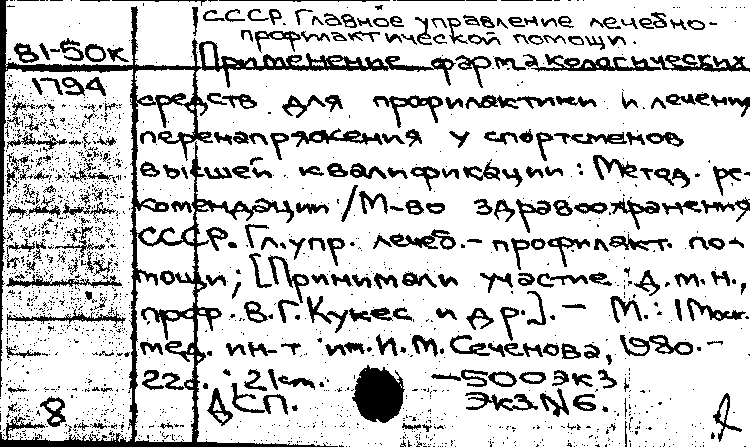 СССР. Главное управление лечебно-
профилактической помощи.
81-50к
Применение фармакологических
1794
средств для профилактики и лечения
перенапряжения у спортсменов
высшей квалификации: Метод. ре-
комендации / М-во здравоохранения
СССР. Гл. упр. лечеб.- профилакт. по-
мощи; [Принимали участие: д.м.н.,
проф. В.Г. Кукес и др.]. - М.: 1 Моск.
мед. ин-т им. И.М. Сеченова, 1980.-
22с.; 21см. -500экз
8 ДСП. Экз.N6.